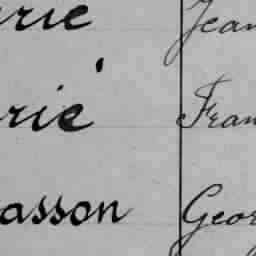 rie Jean
rie Fran
asson Geor